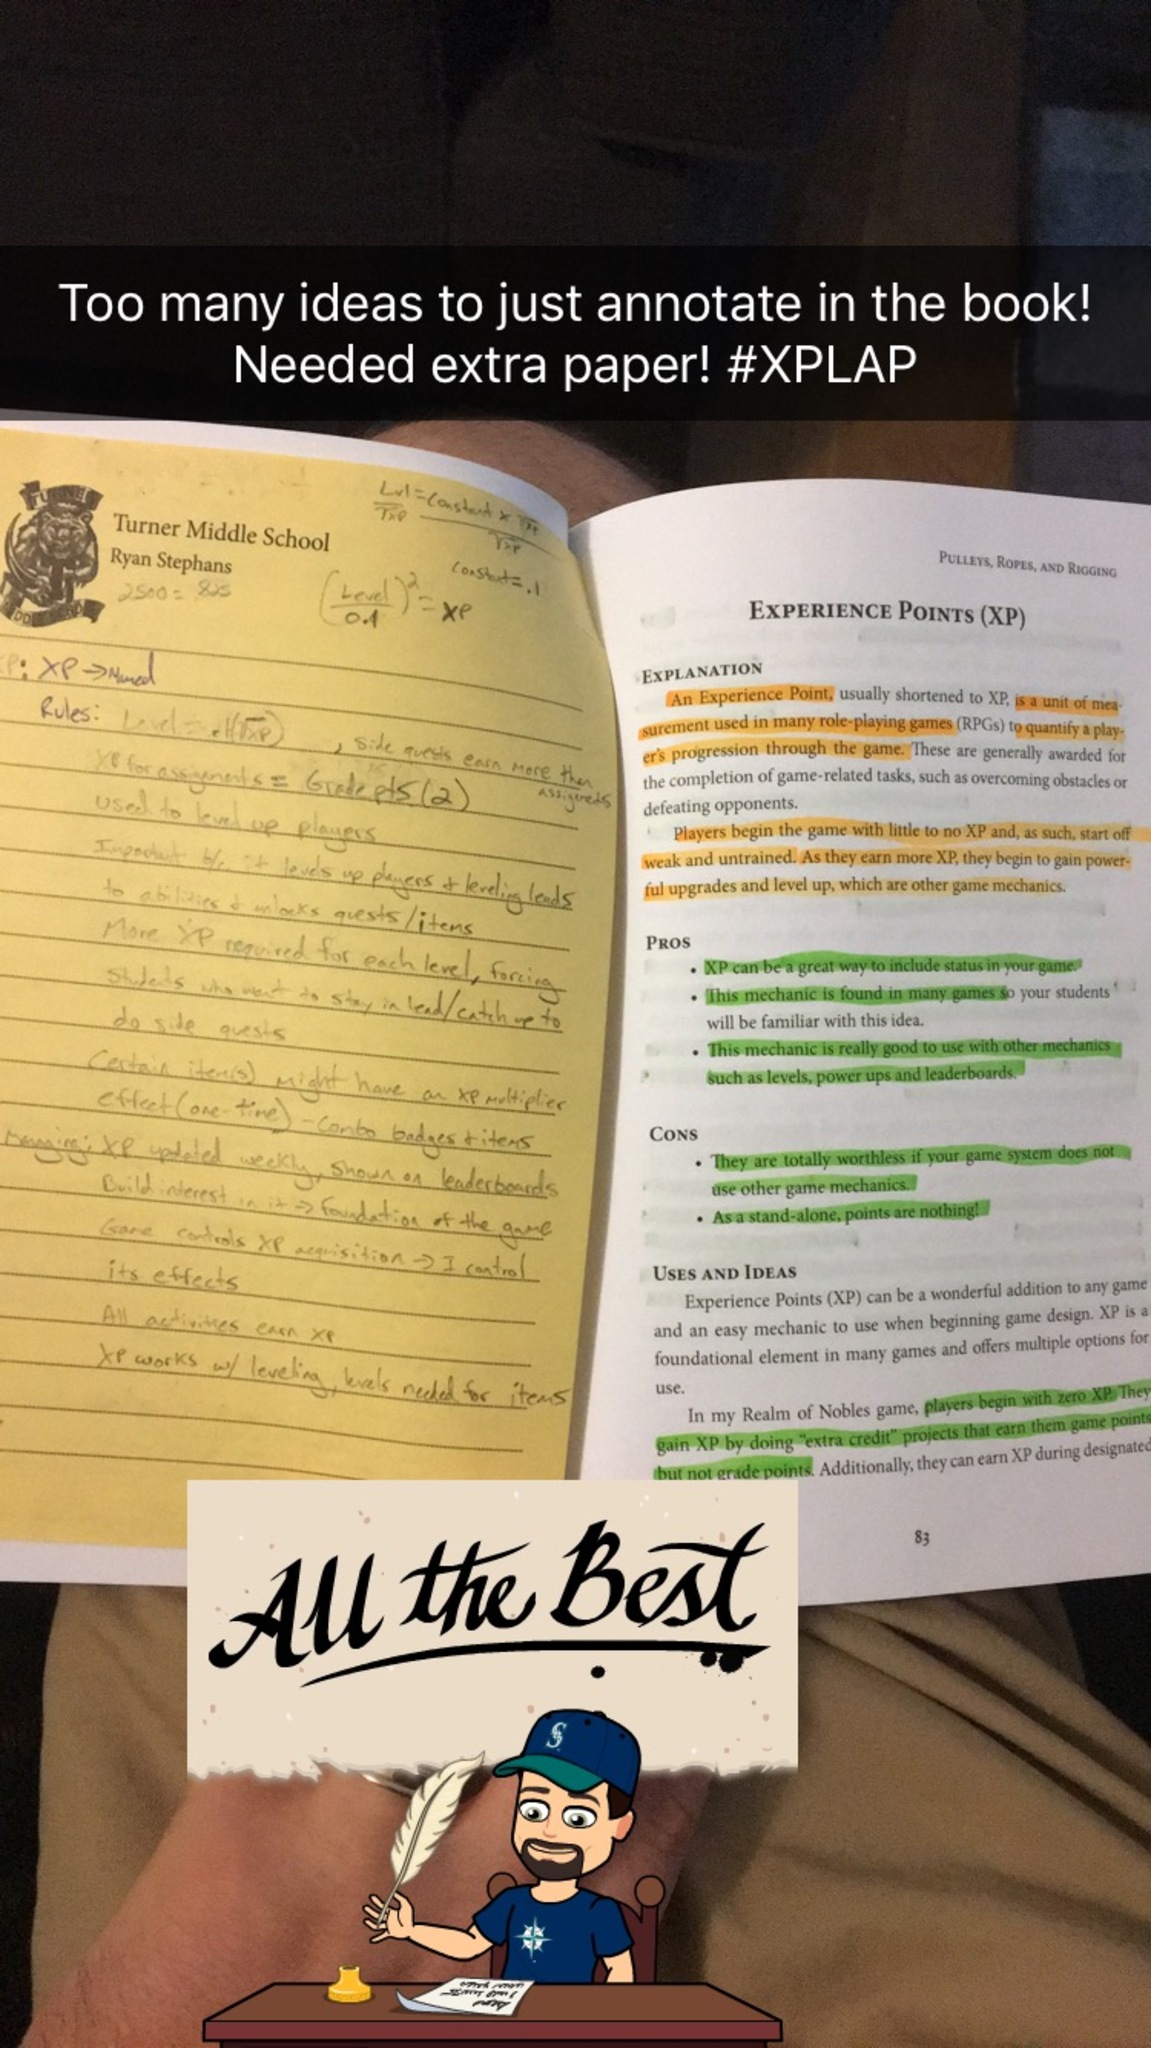 Too many ideas to just annotate in the book!
Needed extra paper! #XPLAP
Turner Middle School
Ryan Stephans
2500 = 825
Lvl = Constant x √xp
√xp
√xp
Constant = .1
(Level / 0.1)² = XP
XP →
Rules: Level = .1(√xp), side quests earn more than
XP for assignments = Grade pts (2)
used to level up players
Important b/c it levels up players & leveling leads
to abilities & unlocks quests/items
More XP required for each level, forcing
students who want to stay in lead/catch up to
do side quests
Certain item(s) might have an XP multiplier
effect (one-time) - Combo badges & items
Managing: XP updated weekly, shown on leaderboards
Build interest in it → foundation of the game
Game controls XP acquisition → I control
its effects
All activities earn XP
XP works w/ leveling, levels needed for items
PULLEYS, ROPES, AND RIGGING
EXPERIENCE POINTS (XP)
EXPLANATION
An Experience Point, usually shortened to XP, is a unit of mea-
surement used in many role-playing games (RPGs) to quantify a play-
er's progression through the game. These are generally awarded for
the completion of game-related tasks, such as overcoming obstacles or
defeating opponents.
Players begin the game with little to no XP and, as such, start off
weak and untrained. As they earn more XP, they begin to gain power-
ful upgrades and level up, which are other game mechanics.
PROS
• XP can be a great way to include status in your game.
• This mechanic is found in many games so your students
will be familiar with this idea.
• This mechanic is really good to use with other mechanics
such as levels, power ups and leaderboards.
CONS
• They are totally worthless if your game system does not
use other game mechanics.
• As a stand-alone, points are nothing!
USES AND IDEAS
Experience Points (XP) can be a wonderful addition to any game
and an easy mechanic to use when beginning game design. XP is a
foundational element in many games and offers multiple options for
use.
In my Realm of Nobles game, players begin with zero XP. They
gain XP by doing "extra credit" projects that earn them game points
but not grade points. Additionally, they can earn XP during designated
83
All the Best